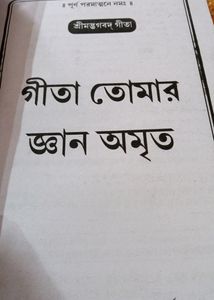 ॥ পূর্ণ পরমাত্মনে নমঃ ॥
শ্রীমদ্ভগবদ্ গীতা
গীতা তোমার
জ্ঞান অমৃত